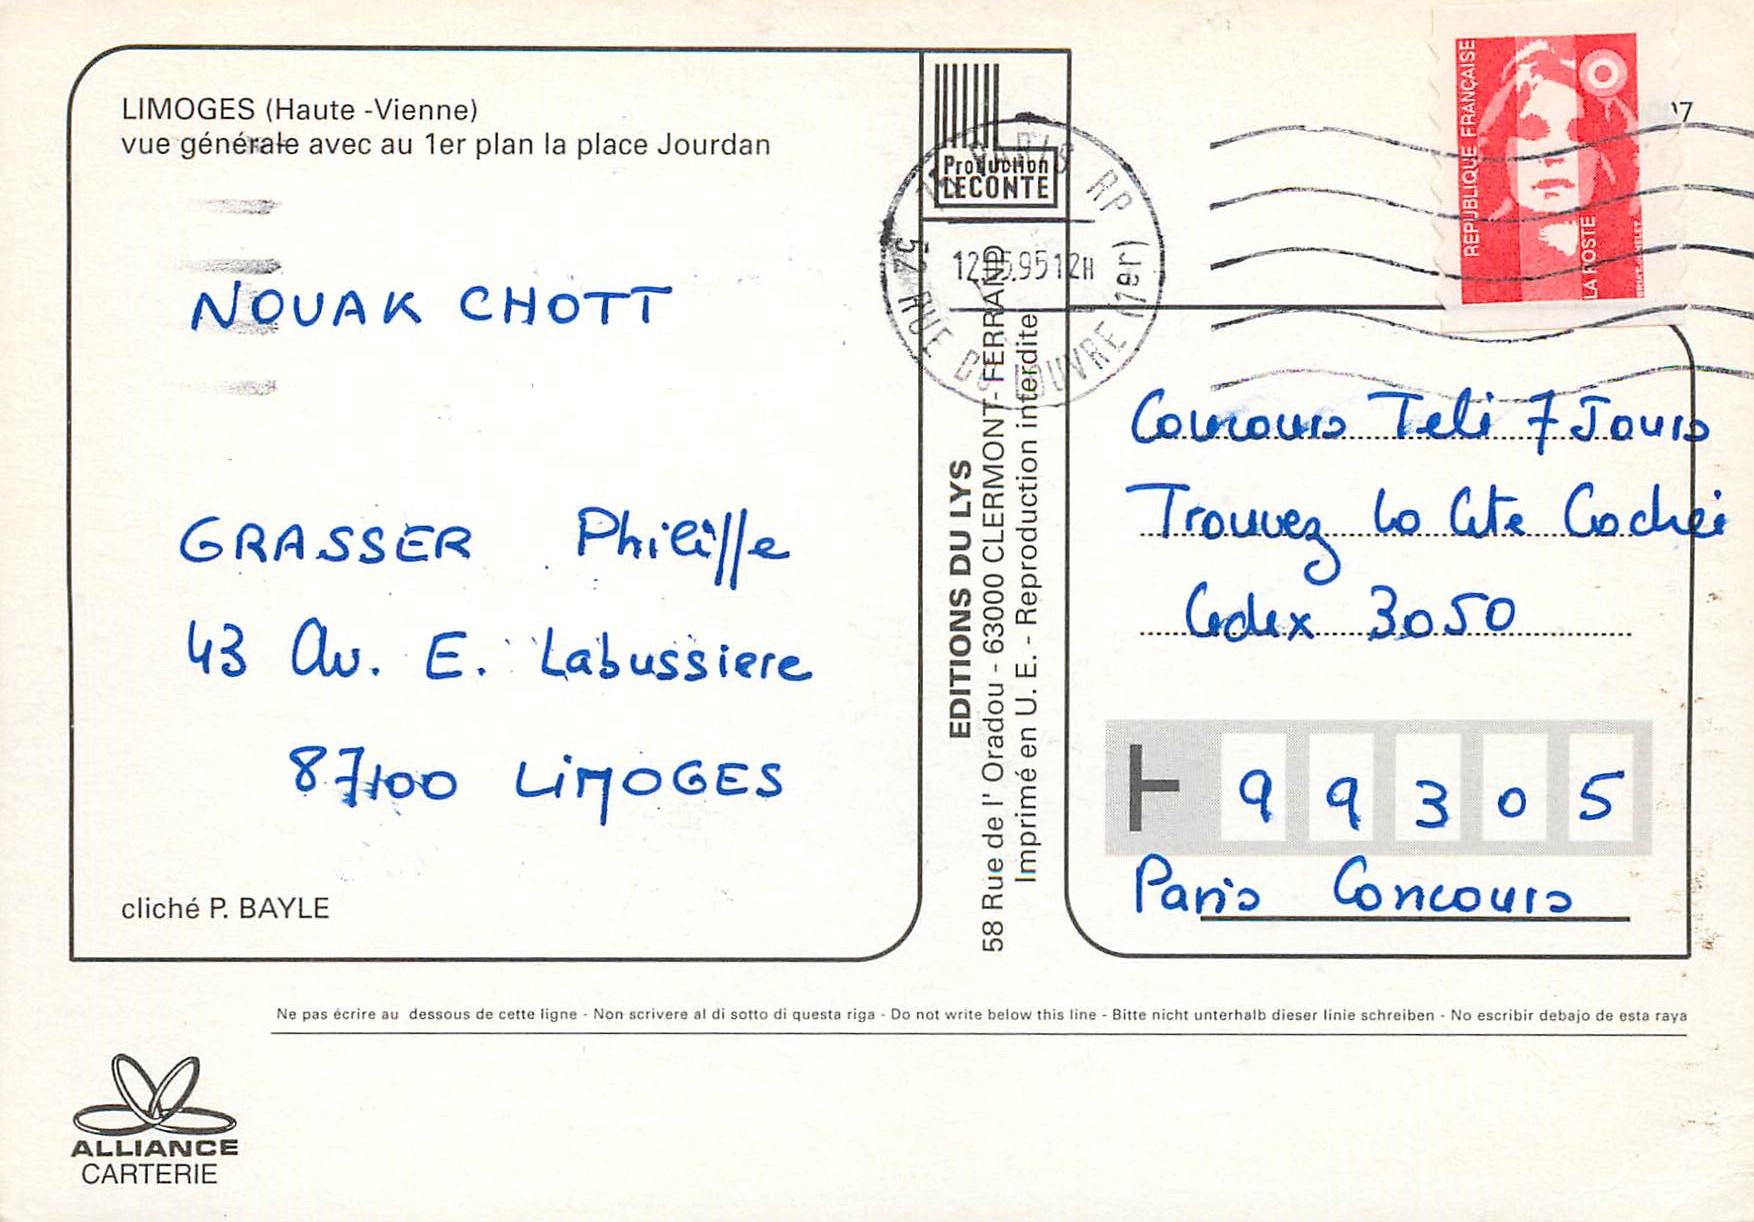 LIMOGES (Haute -Vienne)
vue générale avec au 1er plan la place Jourdan
NOUAK CHOTT
GRASSER Philippe
43 Av. E. Labussiere
87100 LIMOGES
cliché P. BAYLE
Production
LECONTE
PARIS RP
12.05.95 12H
52 RUE DU LOUVRE (1er)
EDITIONS DU LYS
58 Rue de l' Oradou - 63000 CLERMONT-FERRAND
Imprimé en U. E. - Reproduction interdite
REPUBLIQUE FRANÇAISE
LA POSTE
Concours Teli 7 Jours
Trouvez la Cite Cachée
Cedex 3050
99305
Paris Concours
Ne pas écrire au dessous de cette ligne - Non scrivere al di sotto di questa riga - Do not write below this line - Bitte nicht unterhalb dieser linie schreiben - No escribir debajo de esta raya
ALLIANCE
CARTERIE